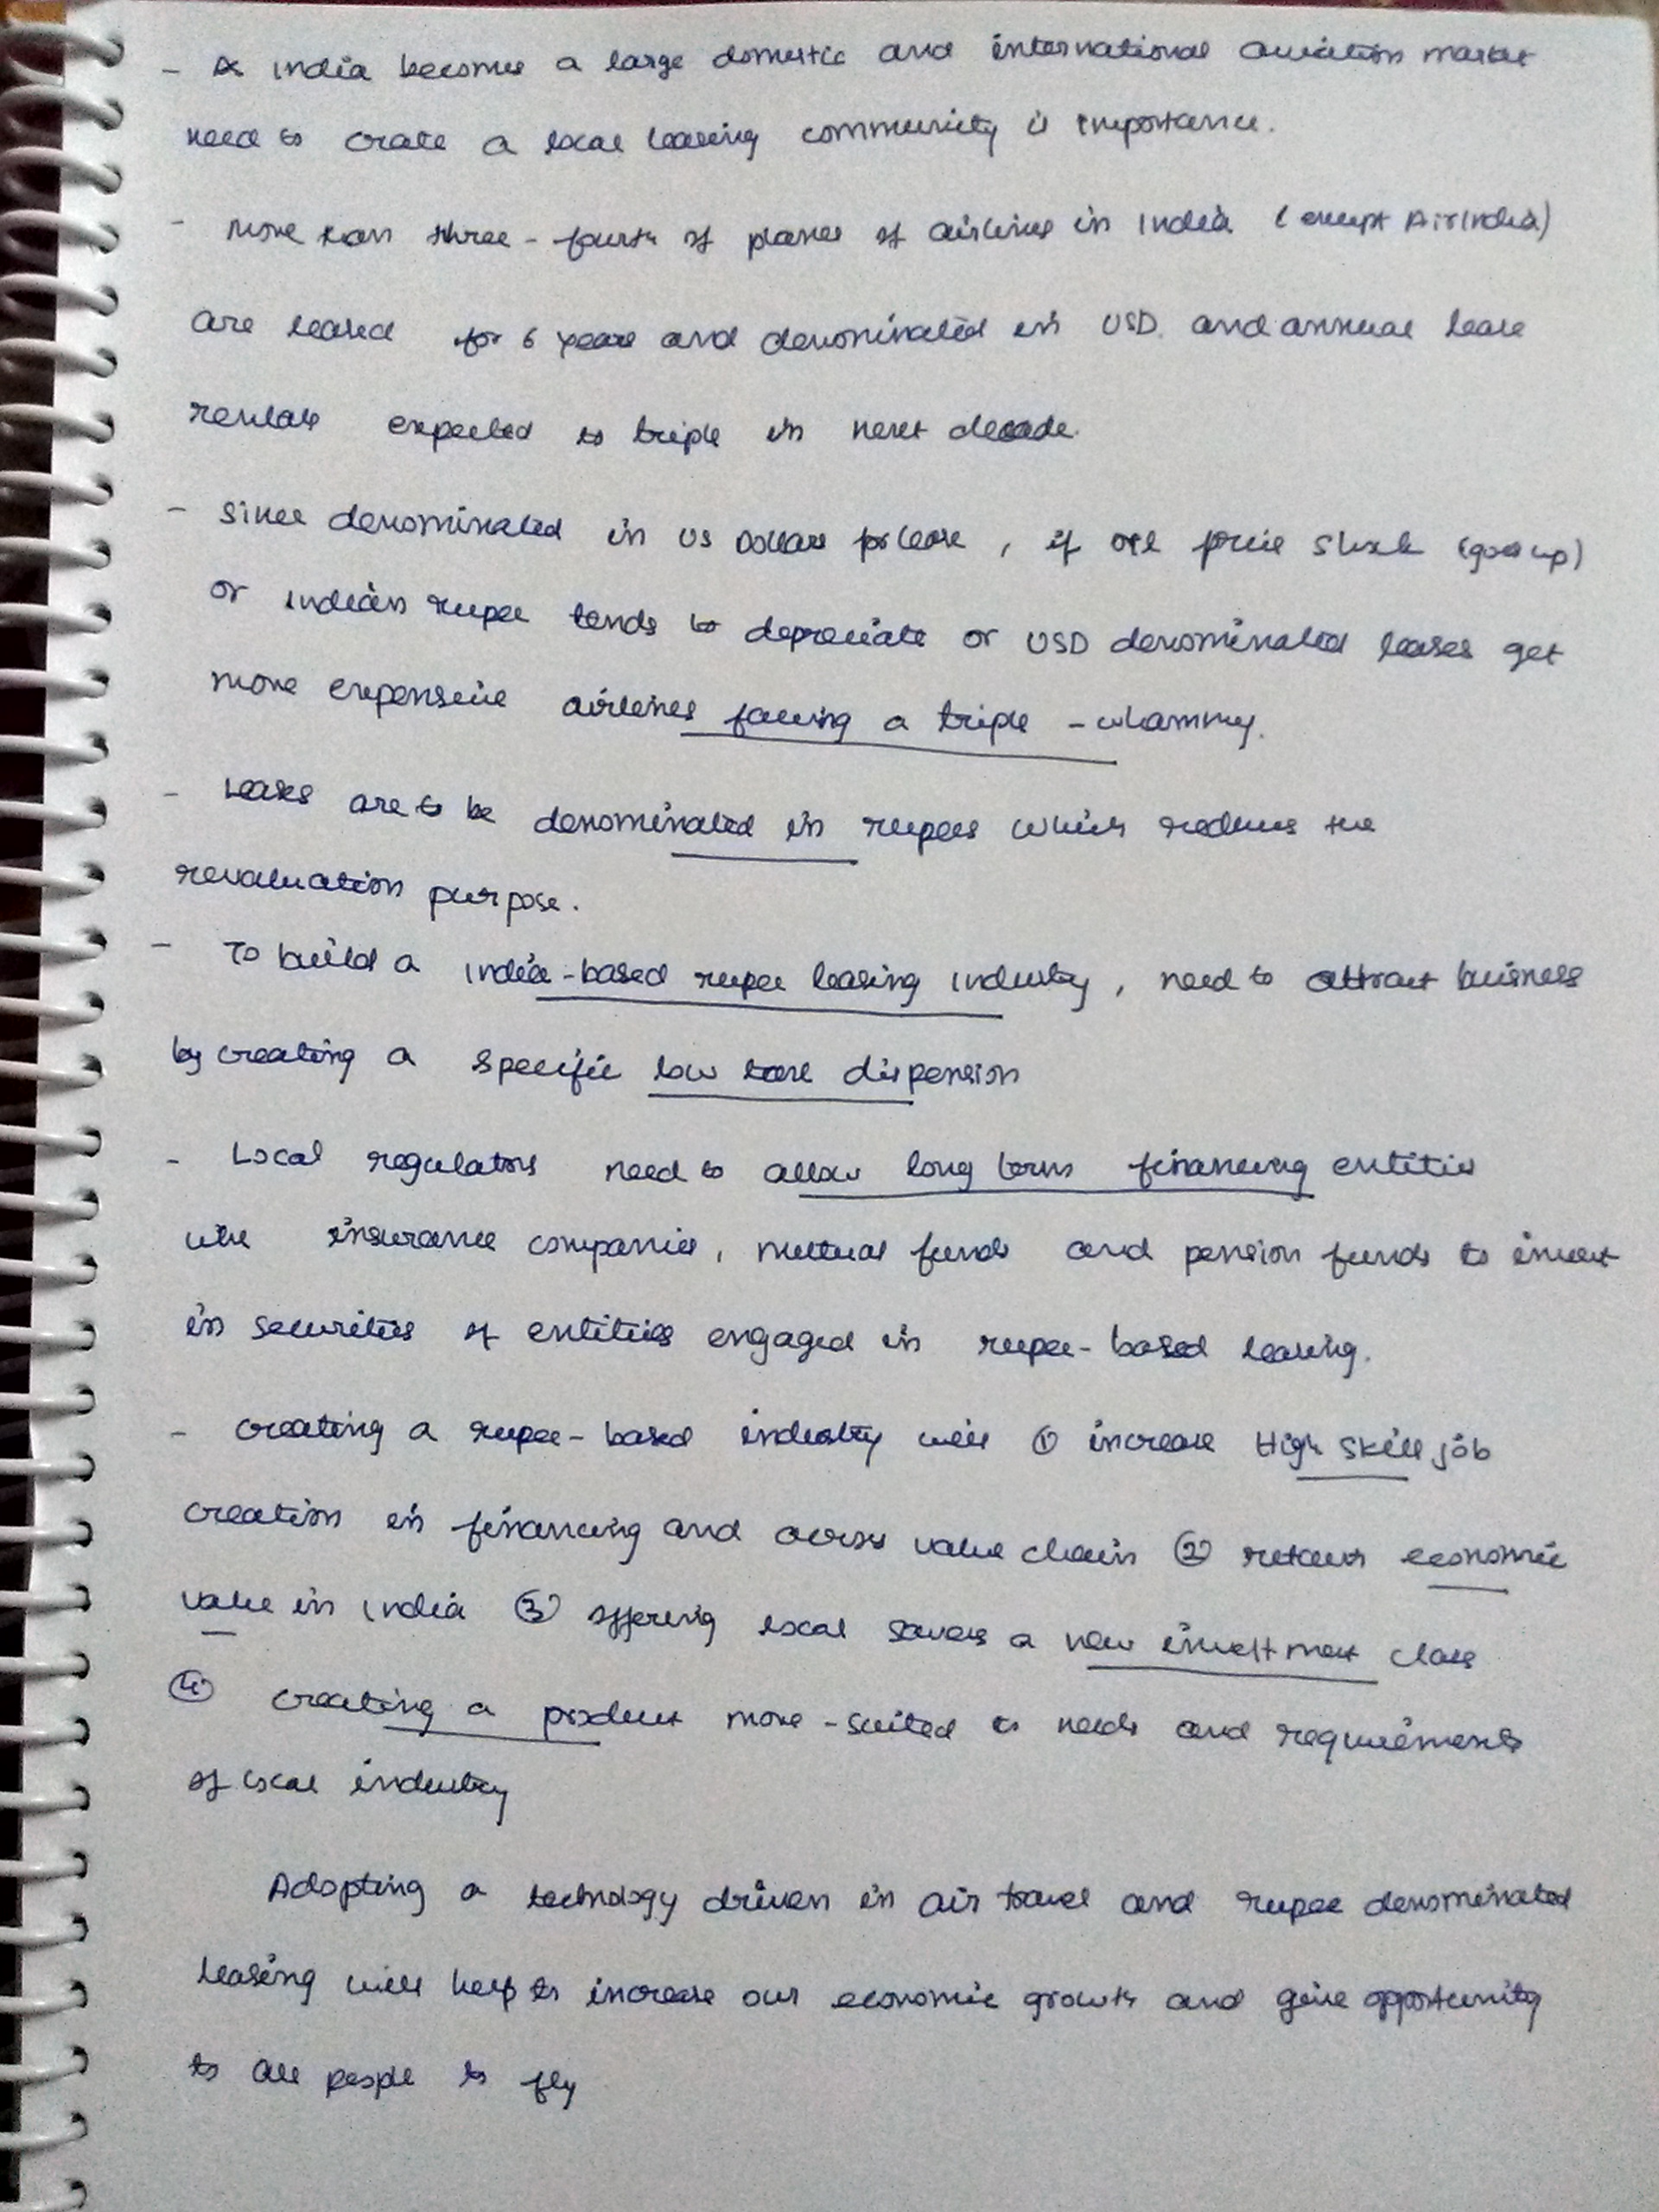 - As India becomes a large domestic and international aviation market
need to crate a local leasing community is importance.
- More than three-fourth of planes of airlines in India (except AirIndia)
are leased for 6 years and denominated in USD. and annual lease
rentals expected to triple in next decade.
- Since denominated in US Dollars for lease, if oil price (goes up)
or Indian rupee tends to depreciate or USD denominated leases get
more expensive airlines facing a triple-whammy.
- Leases are to be denominated in rupees which reduces the
revaluation purpose.
- To build a India-based rupee leasing industry, need to attract business
by creating a specific low tax dispension
- Local regulators need to allow long term financing entities
like insurance companies, mutual funds and pension funds to invest
in securities of entities engaged in rupee-based leasing.
- creating a rupee-based industry will ① increase High skill job
creation in financing and across value chain ② retains economic
value in India ③ offering local savers a new investment class
④ creating a product more-suited to needs and requirements
of local industry
Adopting a technology driven in air travel and rupee denominated
leasing will help to increase our economic growth and give opportunity
to all people to fly